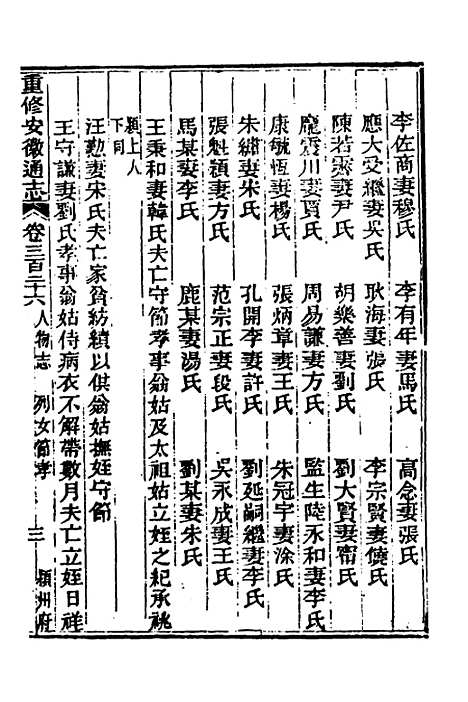 李佐商妻穆氏　李有年妻馬氏　高念妻張氏
應大受繼妻吳氏　耿海妻張氏　李宗賢妻饒氏
陳若霖妻尹氏　胡樂善妻劉氏　劉大賢妻甯氏
龐震川妻賈氏　周易謙妻方氏　監生陸永和妻李氏
康毓恆妻楊氏　張炳章妻王氏　朱冠宇妻涂氏
朱繡妻朱氏　孔開李妻許氏　劉延嗣繼妻李氏
張魁穎妻方氏　范宗正妻段氏　吳永成妻王氏
馬某妻李氏　鹿某妻湯氏　劉某妻朱氏
王秉和妻韓氏夫亡守節孝事翁姑及太祖姑立姪之紀承祧
穎上人下同
汪勤妻宋氏夫亡家貧紡績以供翁姑撫姪守節
王守謙妻劉氏孝事翁姑侍病衣不解帶數月夫亡立姪日祥
重修安徽通志　卷三百二十六　人物志　列女節孝　三　潁州府